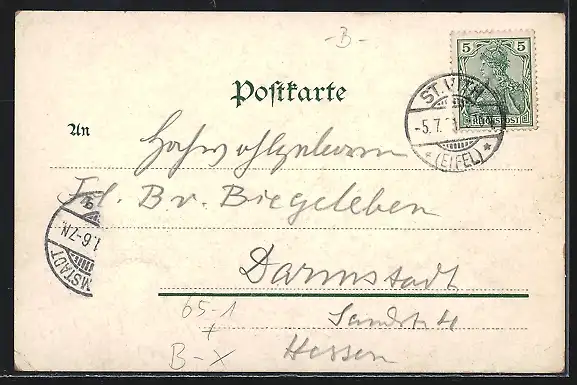 -B-
5 5
REICHSPOST
ST. VITH
-5.7.
* (EIFEL) *
Postkarte
An
Hochwohlgeboren
Frl. B v. Biegeleben
Darmstadt
Sandstr 4
Hessen
MSTADT
1.6-7N.
65-1
+
B-X